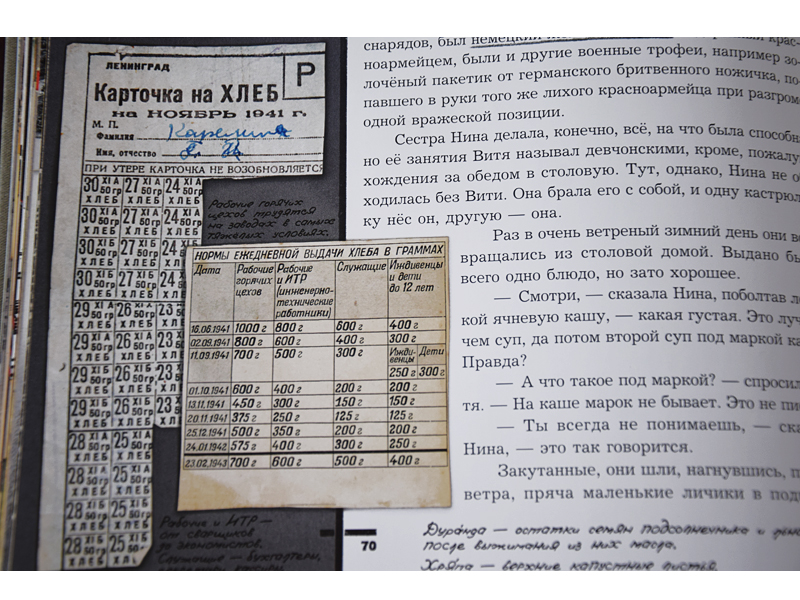 ЛЕНИНГРАД
Р
Карточка на ХЛЕБ
на НОЯБРЬ 1941 г.
М. П.
Фамилия Карелина
Имя, отчество
ПРИ УТЕРЕ КАРТОЧКА НЕ ВОЗОБНОВЛЯЕТСЯ
30 XI А 50 гр ХЛЕБ 27 XI А 50 гр ХЛЕБ 24 XI А 50 гр ХЛЕБ
30 XI А 50 гр ХЛЕБ 27 XI А 50 гр ХЛЕБ 24 XI А 50 гр ХЛЕБ
30 XI Б 50 гр ХЛЕБ 27 XI Б 50 гр ХЛЕБ 24
30 XI Б 50 гр ХЛЕБ 27 XI Б 50 гр ХЛЕБ 24
29 50 гр ХЛЕБ 26 50 гр ХЛЕБ 23
29 50 гр ХЛЕБ 26 50 гр ХЛЕБ 23
29 XI Б 50 гр ХЛЕБ 26 XI Б 50 гр ХЛЕБ 23
29 XI Б 50 гр ХЛЕБ 26 XI Б 50 гр ХЛЕБ 23
28 XI А 50 гр ХЛЕБ 25 XI А 50 гр ХЛЕБ
28 XI А 50 гр ХЛЕБ 25 XI А 50 гр ХЛЕБ
28 XI Б 50 гр ХЛЕБ 25 XI Б 50 гр ХЛЕБ
28 XI Б 50 гр 25 XI Б 50 гр
Рабочие горячих
цехов трудятся
на заводах в самых
тяжелых условиях,
НОРМЫ ЕЖЕДНЕВНОЙ ВЫДАЧИ ХЛЕБА В ГРАММАХ
Дата Рабочие горячих цехов Рабочие и ИТР (инженерно-технические работники) Служащие Индивенцы и дети до 12 лет
16.06.1941 1000 г 800 г 600 г 400 г
02.09.1941 800 г 600 г 400 г 300 г
11.09.1941 700 г 500 г 300 г Иждивенцы 250 г Дети 300 г
01.10.1941 600 г 400 г 200 г 200 г
13.11.1941 450 г 300 г 150 г 150 г
20.11.1941 375 г 250 г 125 г 125 г
25.12.1941 500 г 350 г 200 г 200 г
24.01.1942 575 г 400 г 300 г 250 г
23.02.1943 700 г 600 г 500 г 400 г
Рабочие и ИТР —
от сварщиков
до экономистов.
Служащие — бухгалтери,
снарядов, был немецкий
ноармейцем, были и другие военные трофеи, например зо-
лочёный пакетик от германского бритвенного ножичка, по-
павшего в руки того же лихого красноармейца при разгром
одной вражеской позиции.
Сестра Нина делала, конечно, всё, на что была способн
но её занятия Витя называл девчонскими, кроме, пожалу
хождения за обедом в столовую. Тут, однако, Нина не о
ходилась без Вити. Она брала его с собой, и одну кастрюл
ку нёс он, другую — она.
Раз в очень ветреный зимний день они во
вращались из столовой домой. Выдано бы
всего одно блюдо, но зато хорошее.
— Смотри, — сказала Нина, поболтав ло
кой ячневую кашу, — какая густая. Это луч
чем суп, да потом второй суп под маркой ка
Правда?
— А что такое под маркой? — спросил
тя. — На каше марок не бывает. Это не пи
— Ты всегда не понимаешь, — ска
Нина, — это так говорится.
Закутанные, они шли, нагнувшись, п
ветра, пряча маленькие личики в под
70
Дуранда — остатки семян подсолнечника и
после выжимания из них масла.
Хряпа — верхние капустные листья.